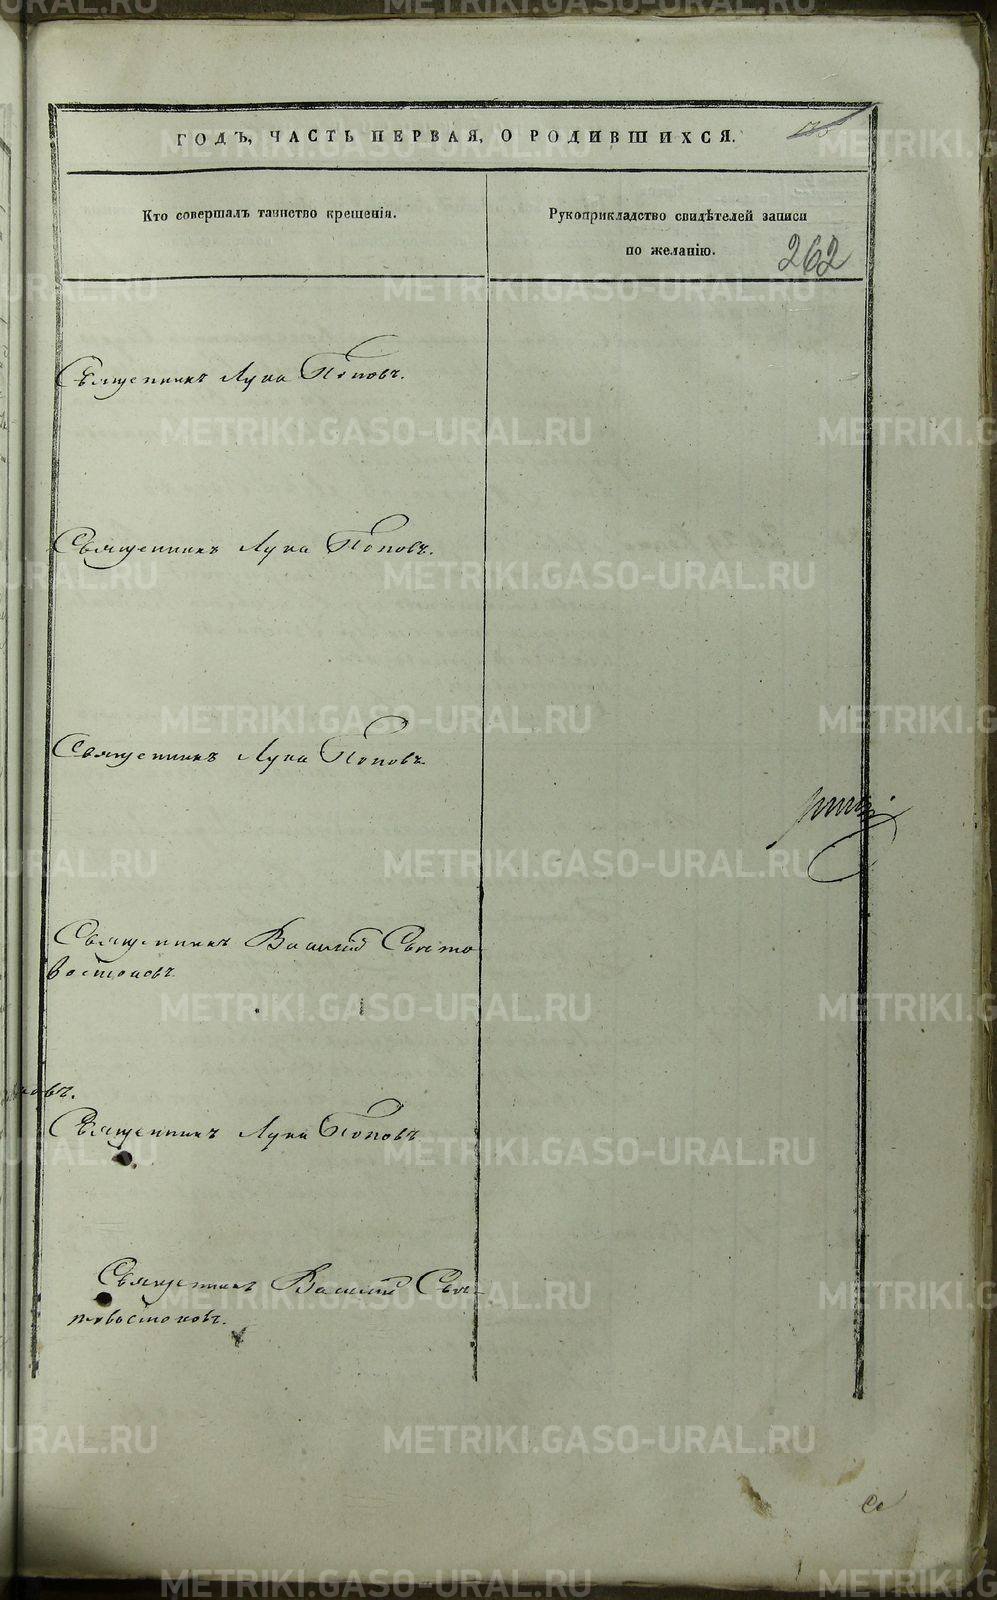 ГОДЪ, ЧАСТЬ ПЕРВАЯ, О РОДИВШИХСЯ.
Кто совершалъ таинство крещенія.
Рукоприкладство свидѣтелей записи
по желанію.
262
Священникъ Лука Поповъ.
Священникъ Лука Поповъ.
Священникъ Лука Поповъ.
Священникъ Василій Свѣто
востоковъ
Священникъ Лука Поповъ
Священникъ Василій Свѣ-
товостоковъ.
METRIKI.GASO-URAL.RU